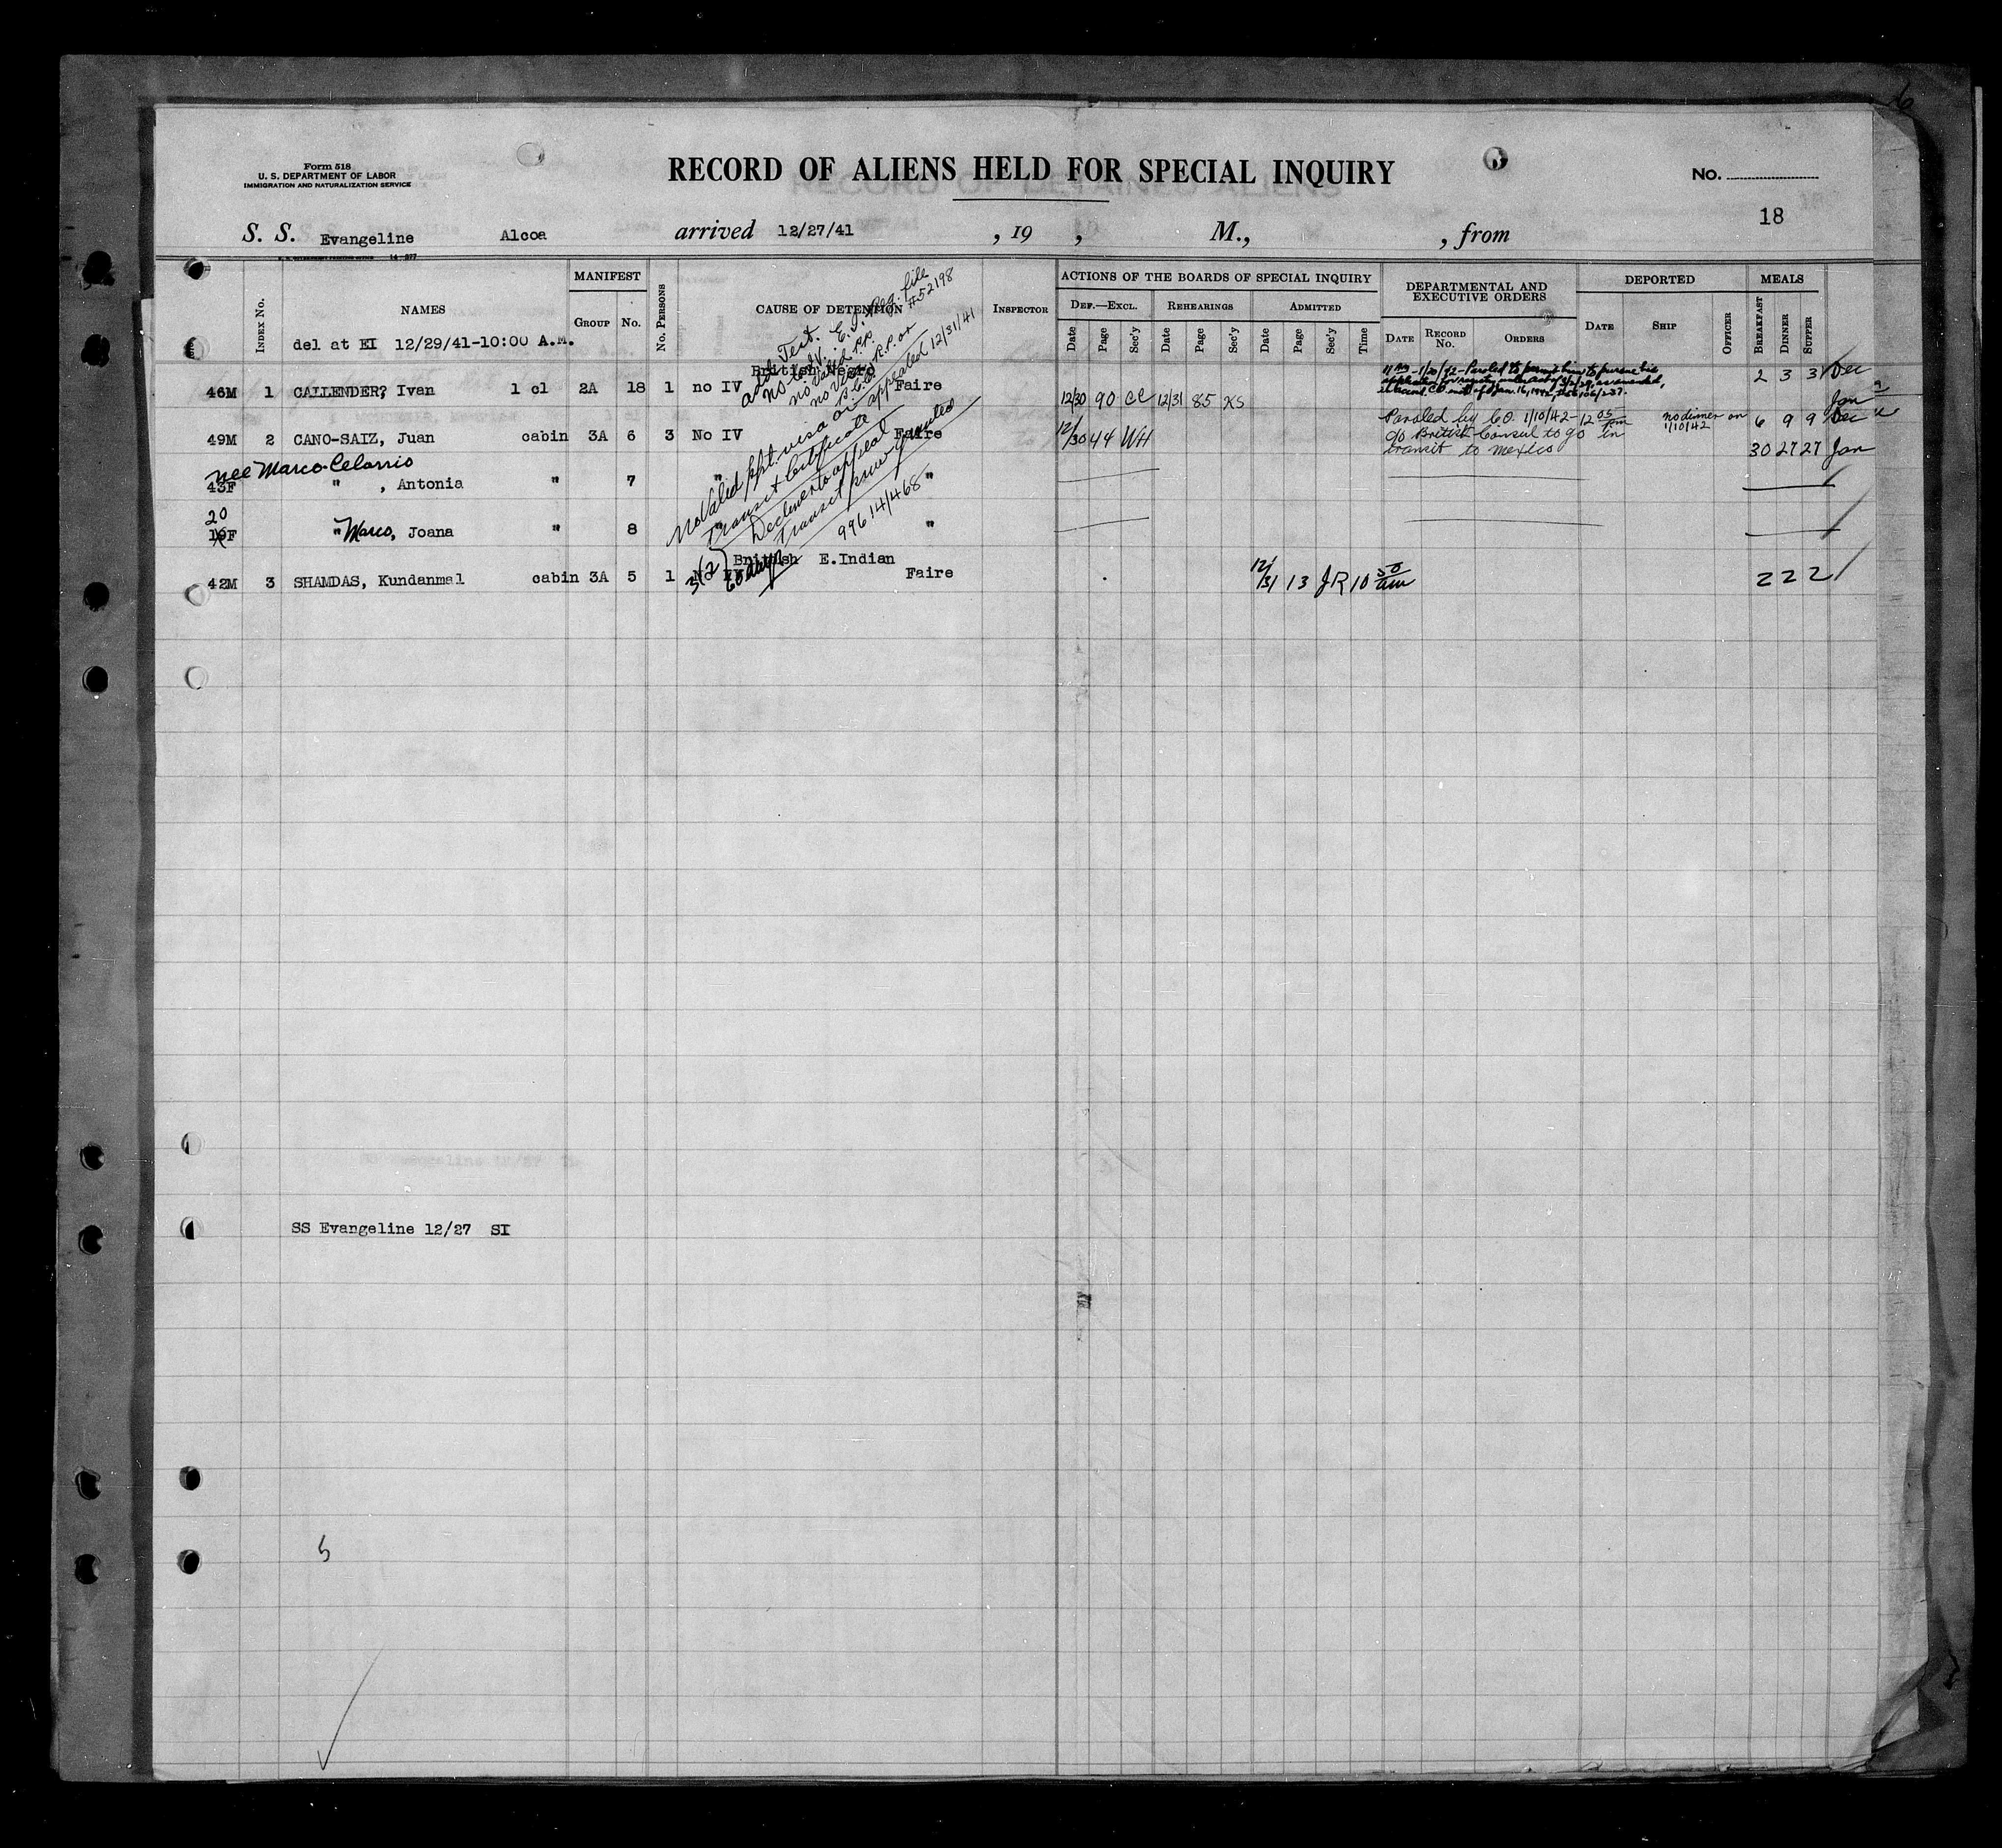 Form 518
U. S. DEPARTMENT OF LABOR
IMMIGRATION AND NATURALIZATION SERVICE
RECORD OF ALIENS HELD FOR SPECIAL INQUIRY
No.
18
S. S. Evangeline Alcoa arrived 12/27/41 , 19 , M., , from
14—977
INDEX No.
NAMES
MANIFEST
GROUP No.
No. PERSONS
CAUSE OF DETENTION
INSPECTOR
ACTIONS OF THE BOARDS OF SPECIAL INQUIRY
DEF.—EXCL. REHEARINGS ADMITTED
Date Page Sec'y Date Page Sec'y Date Page Sec'y Time
DEPARTMENTAL AND
EXECUTIVE ORDERS
DATE RECORD No. ORDERS
DEPORTED
DATE SHIP OFFICER
MEALS
BREAKFAST DINNER SUPPER
del at EI 12/29/41-10:00 A.M.
Reg. file
#52198
British Negro
46M 1 CALLENDER, Ivan 1 cl 2A 18 1 no IV Faire 12/30 90 CC 12/31 85 KS 2 3 3 Dec
no valid p.p.
appealed 12/31/41
Jan
49M 2 CANO-SAIZ, Juan cabin 3A 6 3 No IV Faire 12/30 44 WH 6 9 9 Dec
Paroled by CO. 1/10/42-12 05 pm
no dinner on
1/10/42
c/o British Consul to go in
transit to Mexico
30 27 27 Jan
nee Marco-Celorrio
43F " , Antonia " 7 " "
No valid ppt. visa or
Transit Certificate
Declined to appeal
Transit priv granted
99614/468
20
F " Marco, Joana " 8 "
British E.Indian
42M 3 SHAMDAS, Kundanmal cabin 3A 5 1 No IV Faire 12/31 13 JR 10 50 am 2 2 2
3(2)
60 days
SS Evangeline 12/27 SI
5